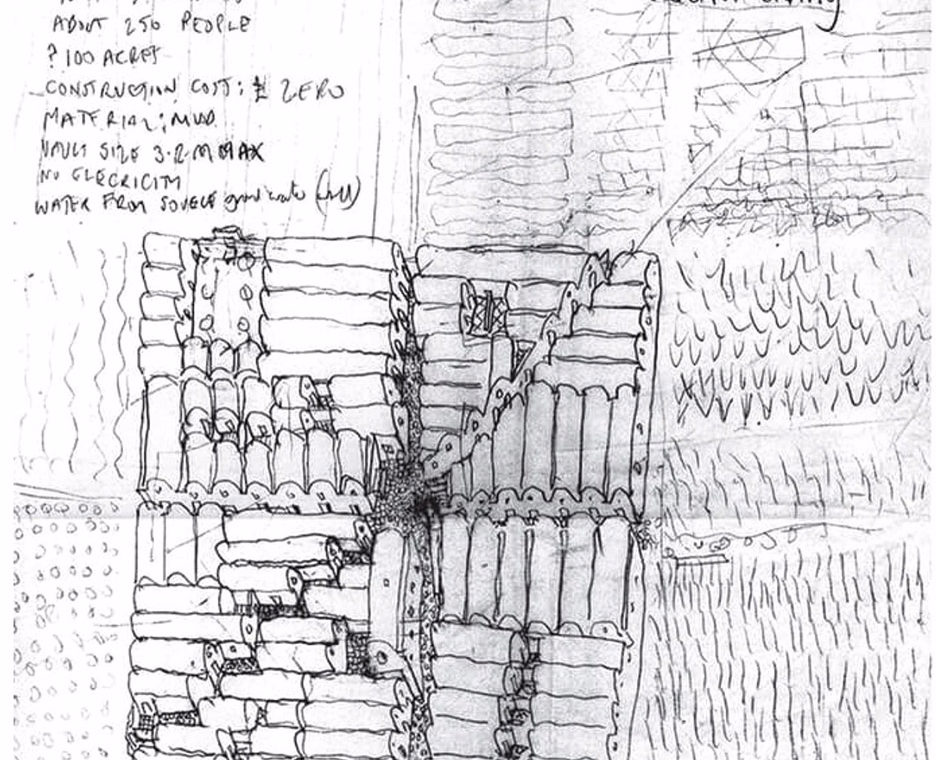 ABOUT 250 PEOPLE
? 100 ACRES
CONSTRUCTION COST: £ ZERO
MATERIAL: MUD
VAULT SIZE 3.2 M MAX
NO ELECRICITY
WATER FROM SOURCE ground water (well)